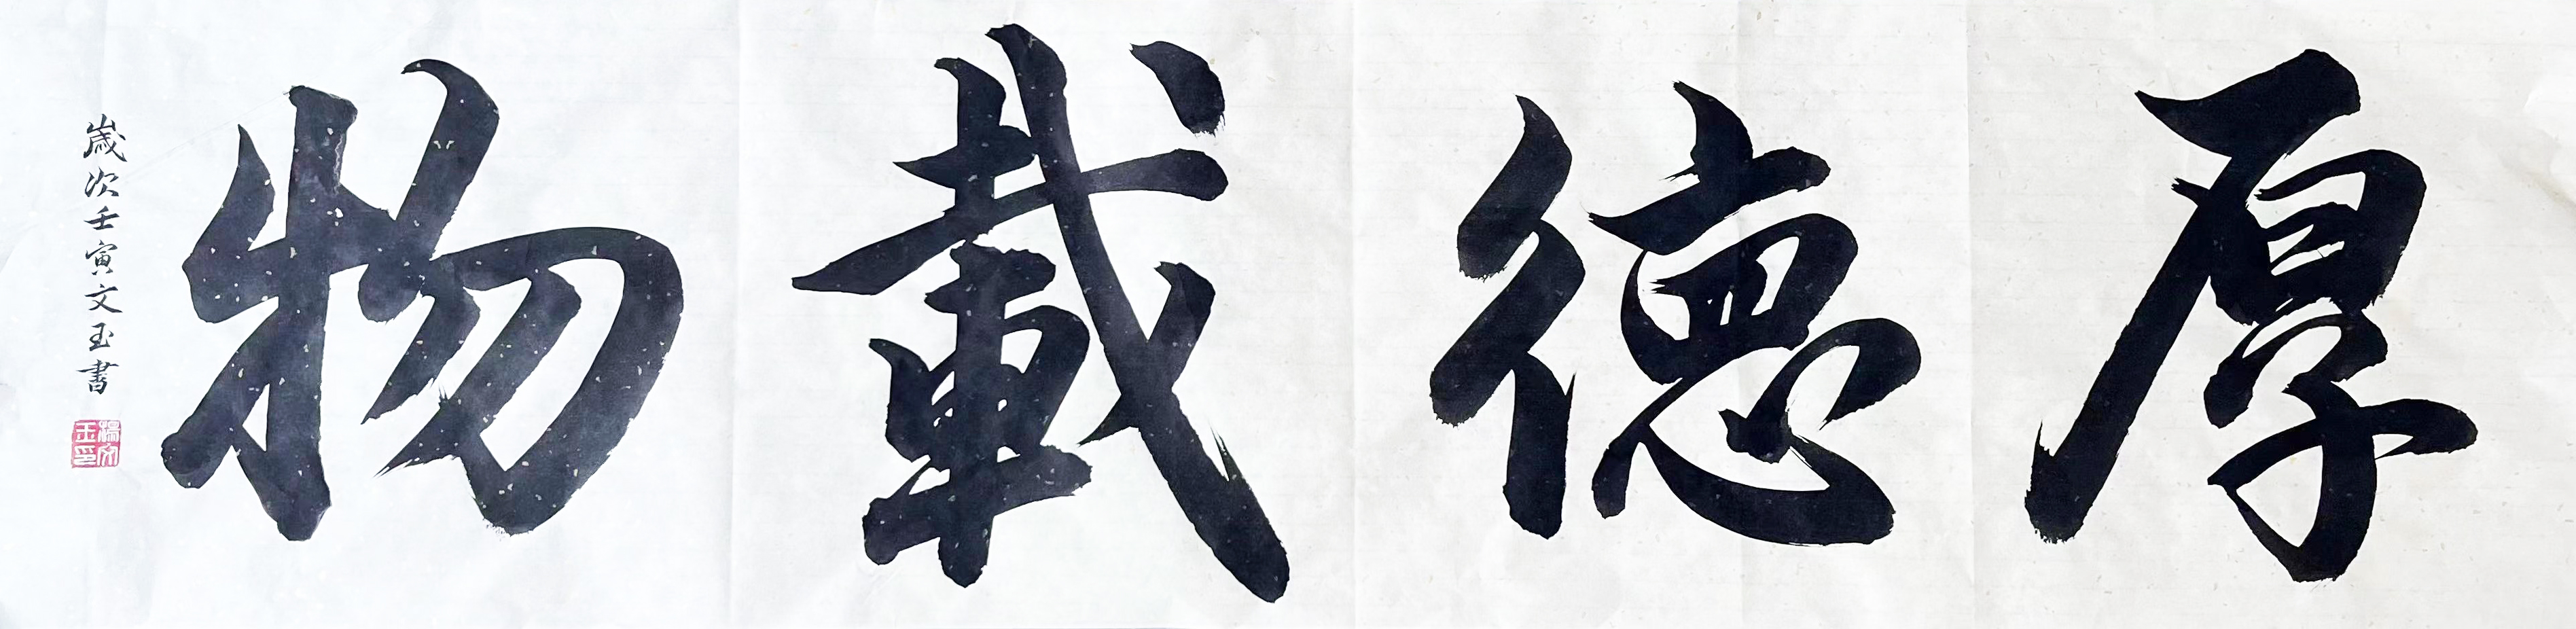 厚德載物
歲次壬寅文玉書
楊文玉印